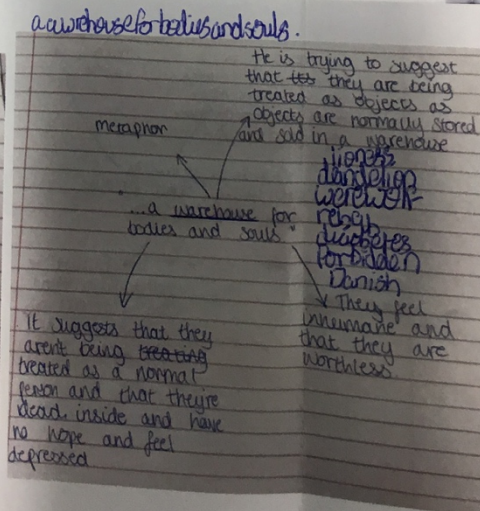 a a warehouse for bodies and souls.
He is trying to suggest
that they are being
treated as objects as
objects are normally stored
and sold in a warehouse
metaphor
lioness
dandelion
werewolf
...a warehouse for
bodies and souls.
diabetes
forbidden
Danish
They feel
inhumane and
that they are
worthless.
It suggests that they
aren't being treating
treated as a normal
person and that they're
dead inside and have
no hope and feel
depressed